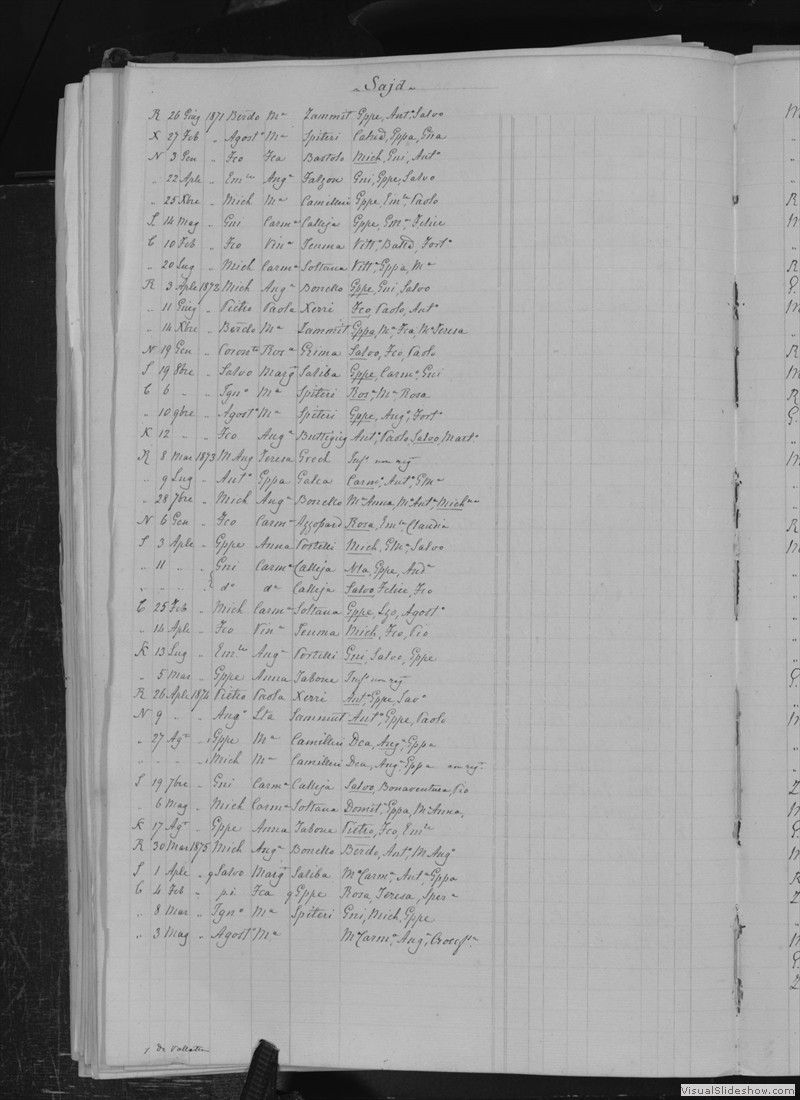 Sajd
R 26 Giug 1871 Berdo Mª Zammit Gppe, Antº Salvo
X 27 Feb " Agostº Mª Spiteri Calcid, Gppa, Gna
N 3 Gen " Fco Fca Bartolo Mich, Gni, Antº
" 22 Aple " Emle Angª Falzon Gni, Gppe, Salvo
" 25 Xbre " Mich Mª Camilleri Gppe, Emle, Paolo
S 14 Mag " Gni Carmª Calleja Gppe, Gmª, Felice
C 10 Feb " Fco Vinª Teuma Vittª, Fortº
" 20 Lug " Mich Carmª Soltana Vittª, Gppa, Mª
R 3 Aple 1872 Mich Angª Bonello Gppe, Gni, Salvo
" 11 Giug " Pietro Paola Xerri Fco, Paolo, Antº
" 14 Xbre " Berdo Mª Zammit Gppa, Mª, Fca, Mª Teresa
N 19 Gen " Coronto Rosª Grima Salvo, Fco, Paolo
S 19 8bre " Salvo Margª Saliba Gppe, Carmº, Gni
C 6 " " Ignº Mª Spiteri Rosª, Mª, Rosa
" 10 9bre " Agostº Mª Spiteri Gppe, Angº, Fortº
K 12 " " Fco Angª Buttigieg Antº, Paolo, Salvo, Martº
R 8 Mar 1873 M Ang Teresa Grech Infº non regº
" 9 Lug " Antº Gppa Galea Carmº, Antº, Gmª
" 28 7bre " Mich Angª Bonello Mª Anna, Mª Antª, Michna
N 6 Gen " Fco Carmª Azzopard Rosa, Emle, Claudia
S 3 Aple " Gppe Anna Portelli Mich, Gmª, Salvo
" 11 " " Gni Carmª Calleja Nta, Gppe, Andª
" " " " dº dª Calleja Salvo, Felice, Fco
C 25 Feb " Mich Carmª Soltana Gppe, Lzo, Agostº
" 14 Aple " Fco Vinª Teuma Mich, Fco, Pio
K 13 Lug " Emle Angª Portelli Gni, Salvo, Gppe
" 5 Mar " Gppe Anna Tabone Infº non regº
R 26 Aple 1874 Pietro Paola Xerri Antº, Gppe, Savº
N 9 " " Angº Sta Sammut Antº, Gppe, Paolo
" 27 Agº " Gppe Mª Camilleri Dca, Angª, Gppa
" " " " Mich Mª Camilleri Dca, Angª, Gppa non regº
S 19 7bre " Gni Carmª Calleja Salvo, Bonaventura, Pio
" 6 Mag " Mich Carmª Soltana Domitª, Gppa, Mª Anna,
K 17 Agº " Gppe Anna Tabone Pietro, Fco, Emle
R 30 Mar 1875 Mich Angª Bonello Berdo, Antº, M Angº
S 1 Aple " Salvo Margª Saliba Mª Carmª, Antª, Gppa
C 4 Feb " p.i. Fca q Gppe Rosa, Teresa, Sperª
" 8 Mar " Ignº Mª Spiteri Gni, Mich, Gppe
" 3 Mag " Agostº Mª Mª Carmª, Angª, Crocefsª
VisualSlideshow.com